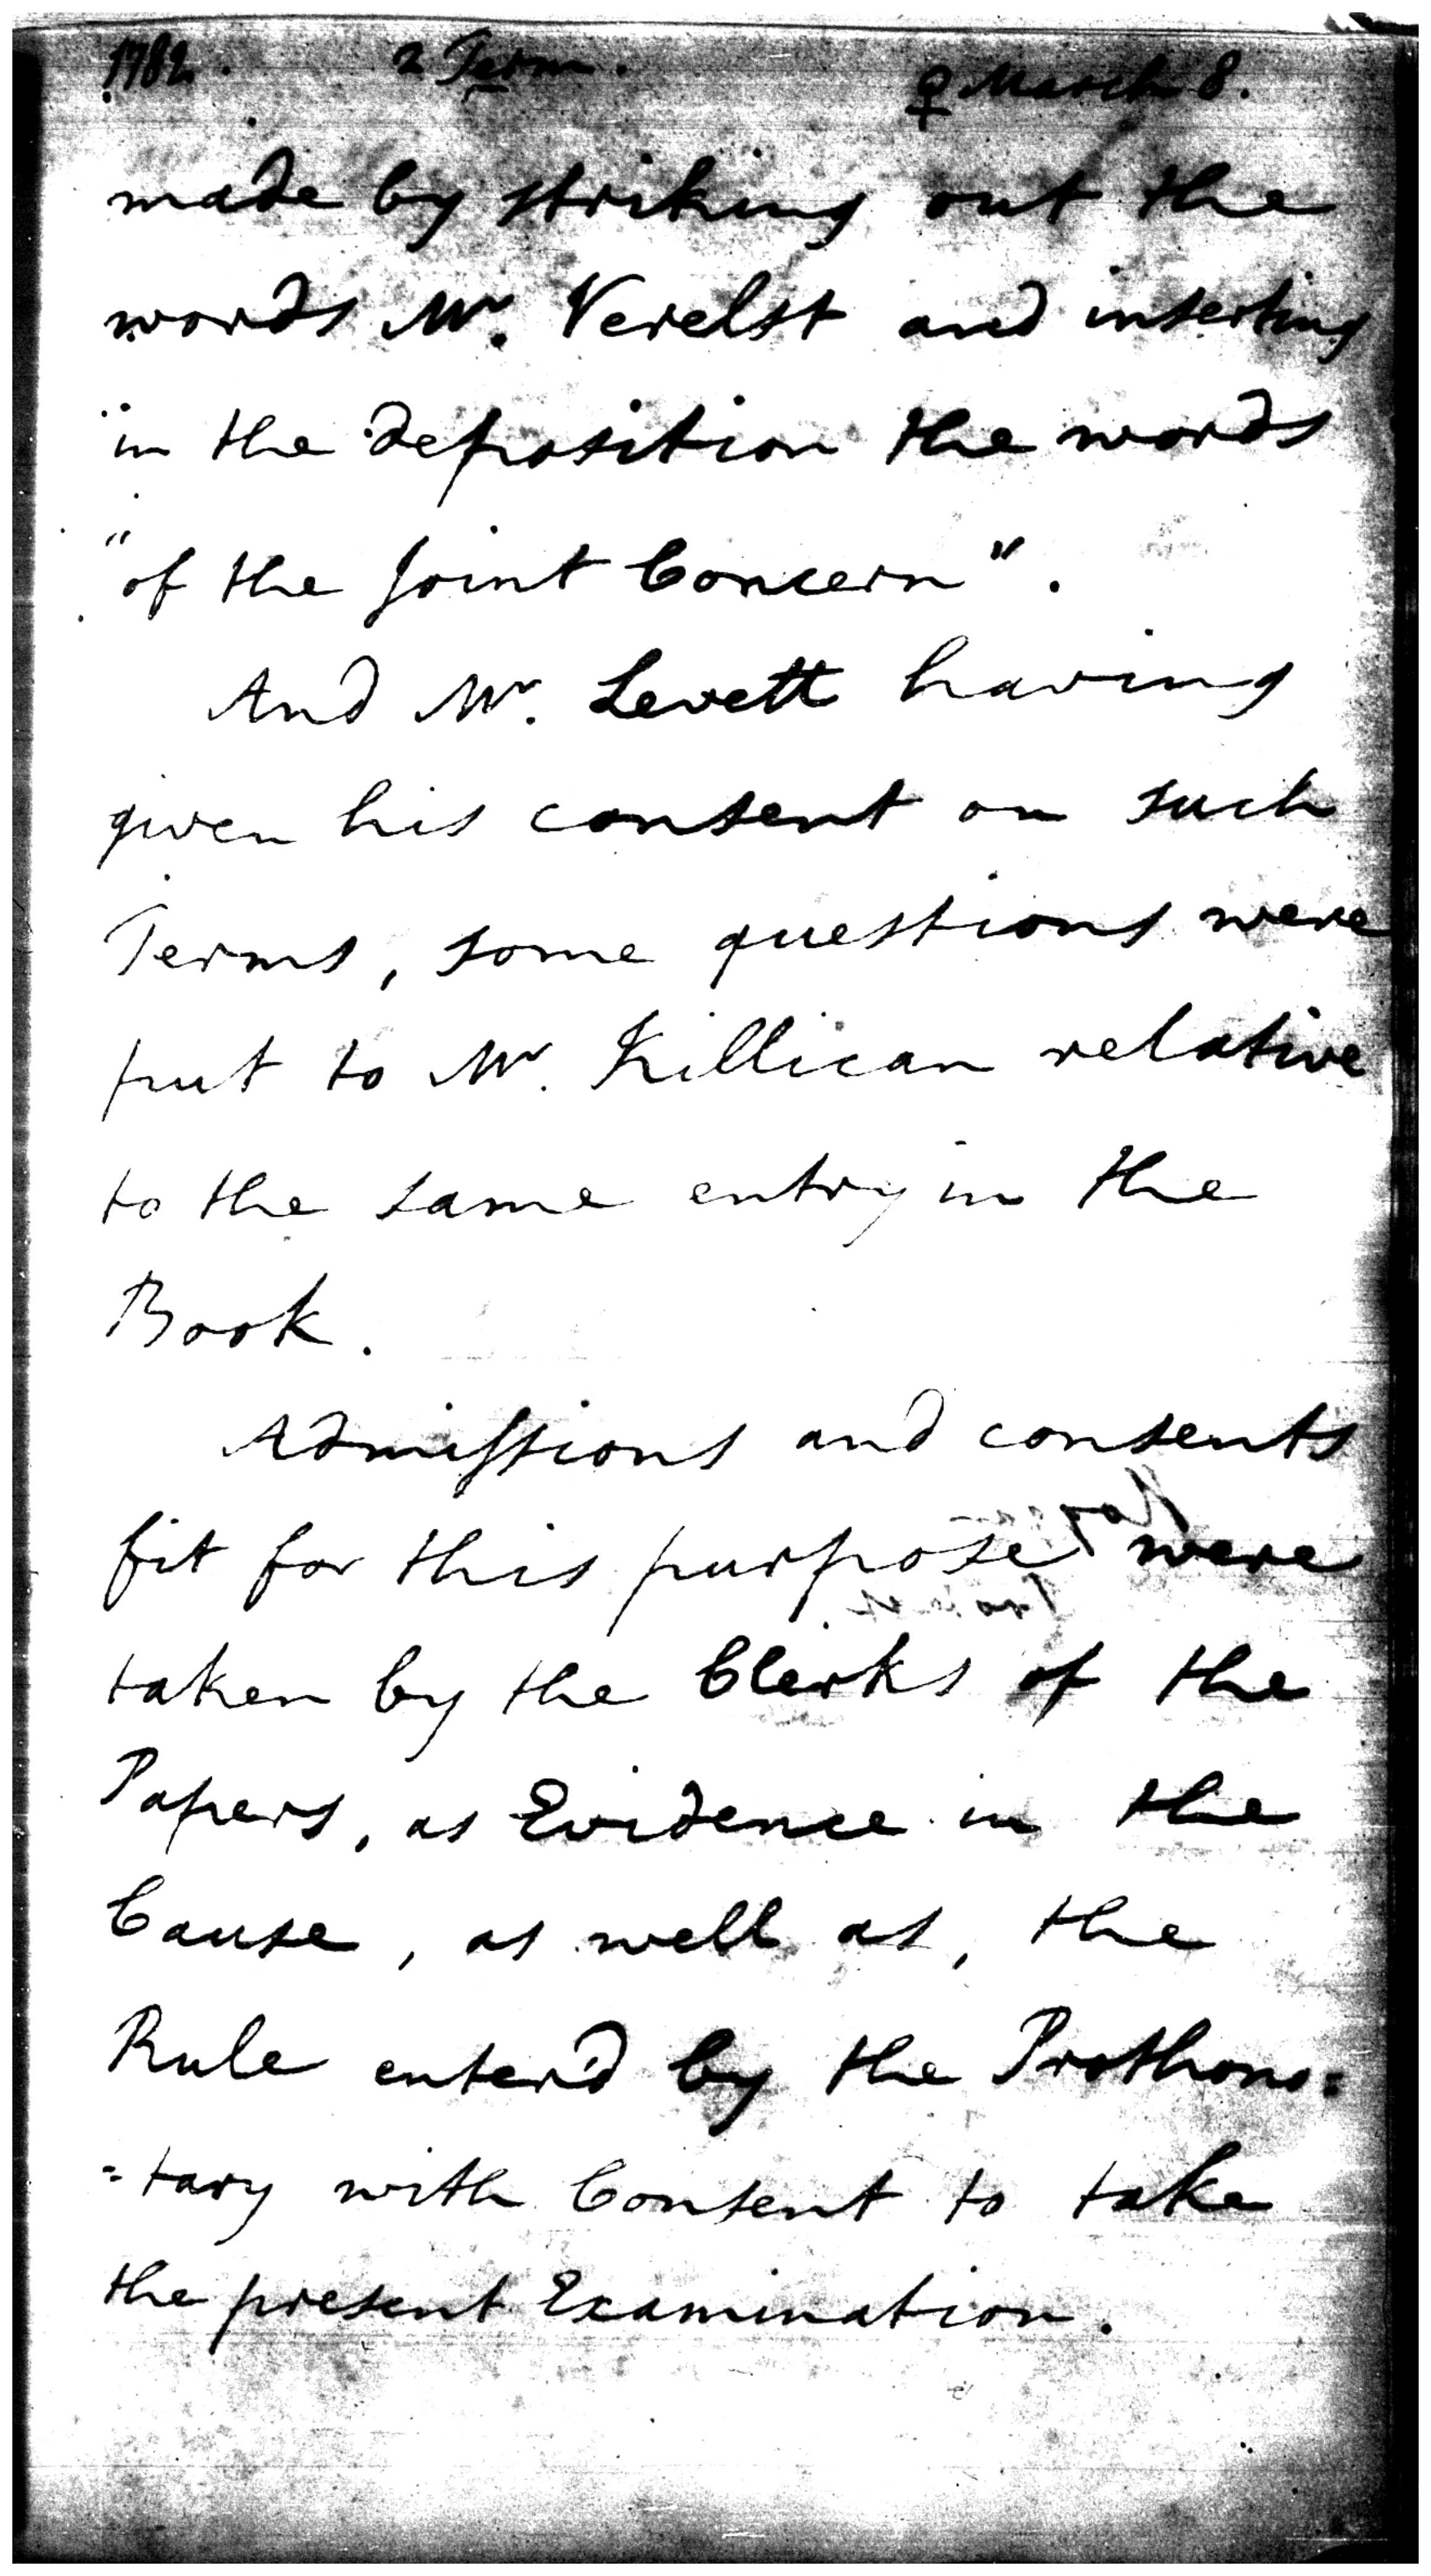 1782. 2 Term. ♀ March 8.
made by striking out the
words Mr. Verelst and inserting
in the deposition the words
"of the Joint Concern".
And Mr. Levett having
given his consent on such
Terms, some questions were
put to Mr. Killican relative
to the same entry in the
Book.
Admiſsions and consents
fit for this purpose were
taken by the Clerks of the
Papers, as Evidence in the
Cause, as well as, the
Rule enter'd by the Prothono=
=tary with Consent to take
the present Examination.